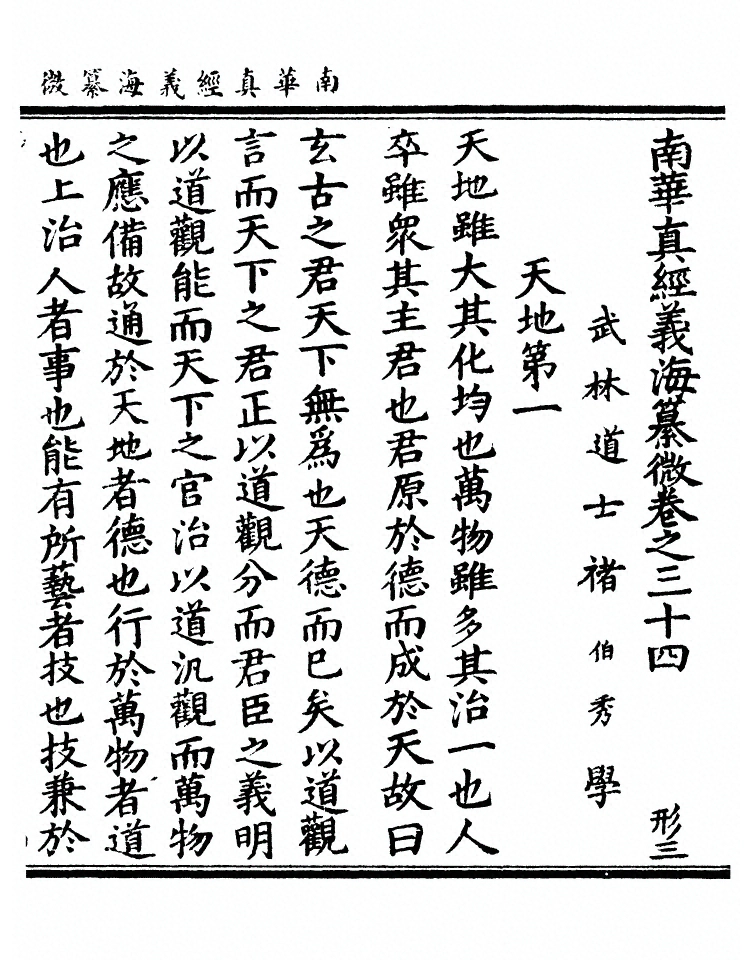 南華真經義海纂微
南華真經義海纂微卷之三十四 形三
武林道士褚伯秀學
天地第一
天地雖大其化均也萬物雖多其治一也人
卒雖眾其主君也君原於德而成於天故曰
玄古之君天下無為也天德而已矣以道觀
言而天下之君正以道觀分而君臣之義明
以道觀能而天下之官治以道汎觀而萬物
之應備故通於天地者德也行於萬物者道
也上治人者事也能有所藝者技也技兼於